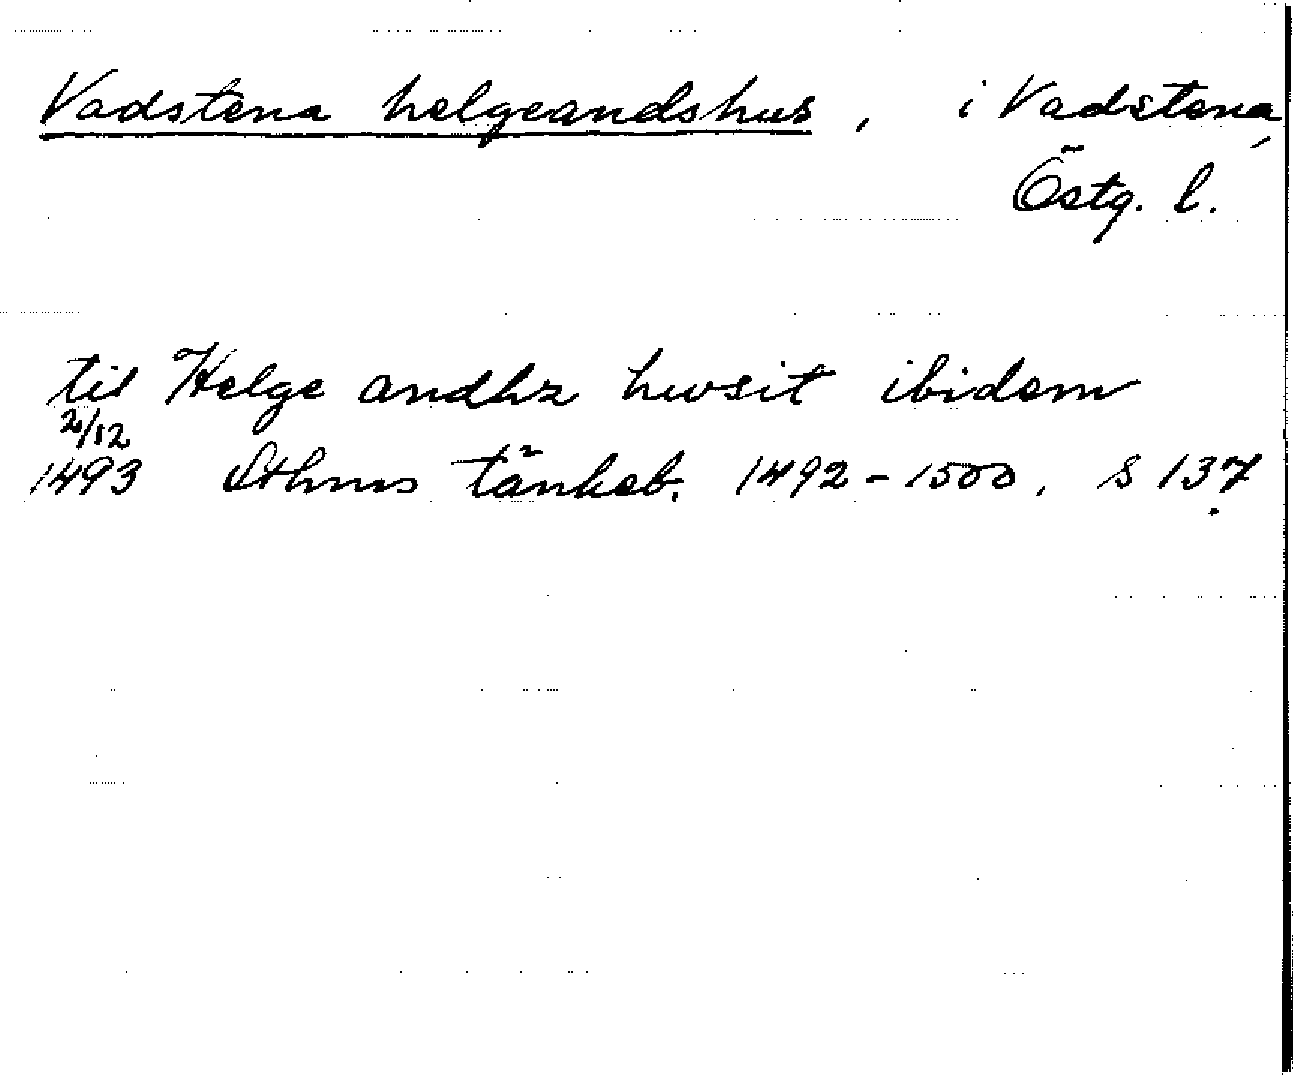 Vadstena helgeandshus, i Vadstena,
Östg. l.
til Helge andhz hwsit ibidem
2/12
1493 Sthms tänkeb. 1492-1500, s 137